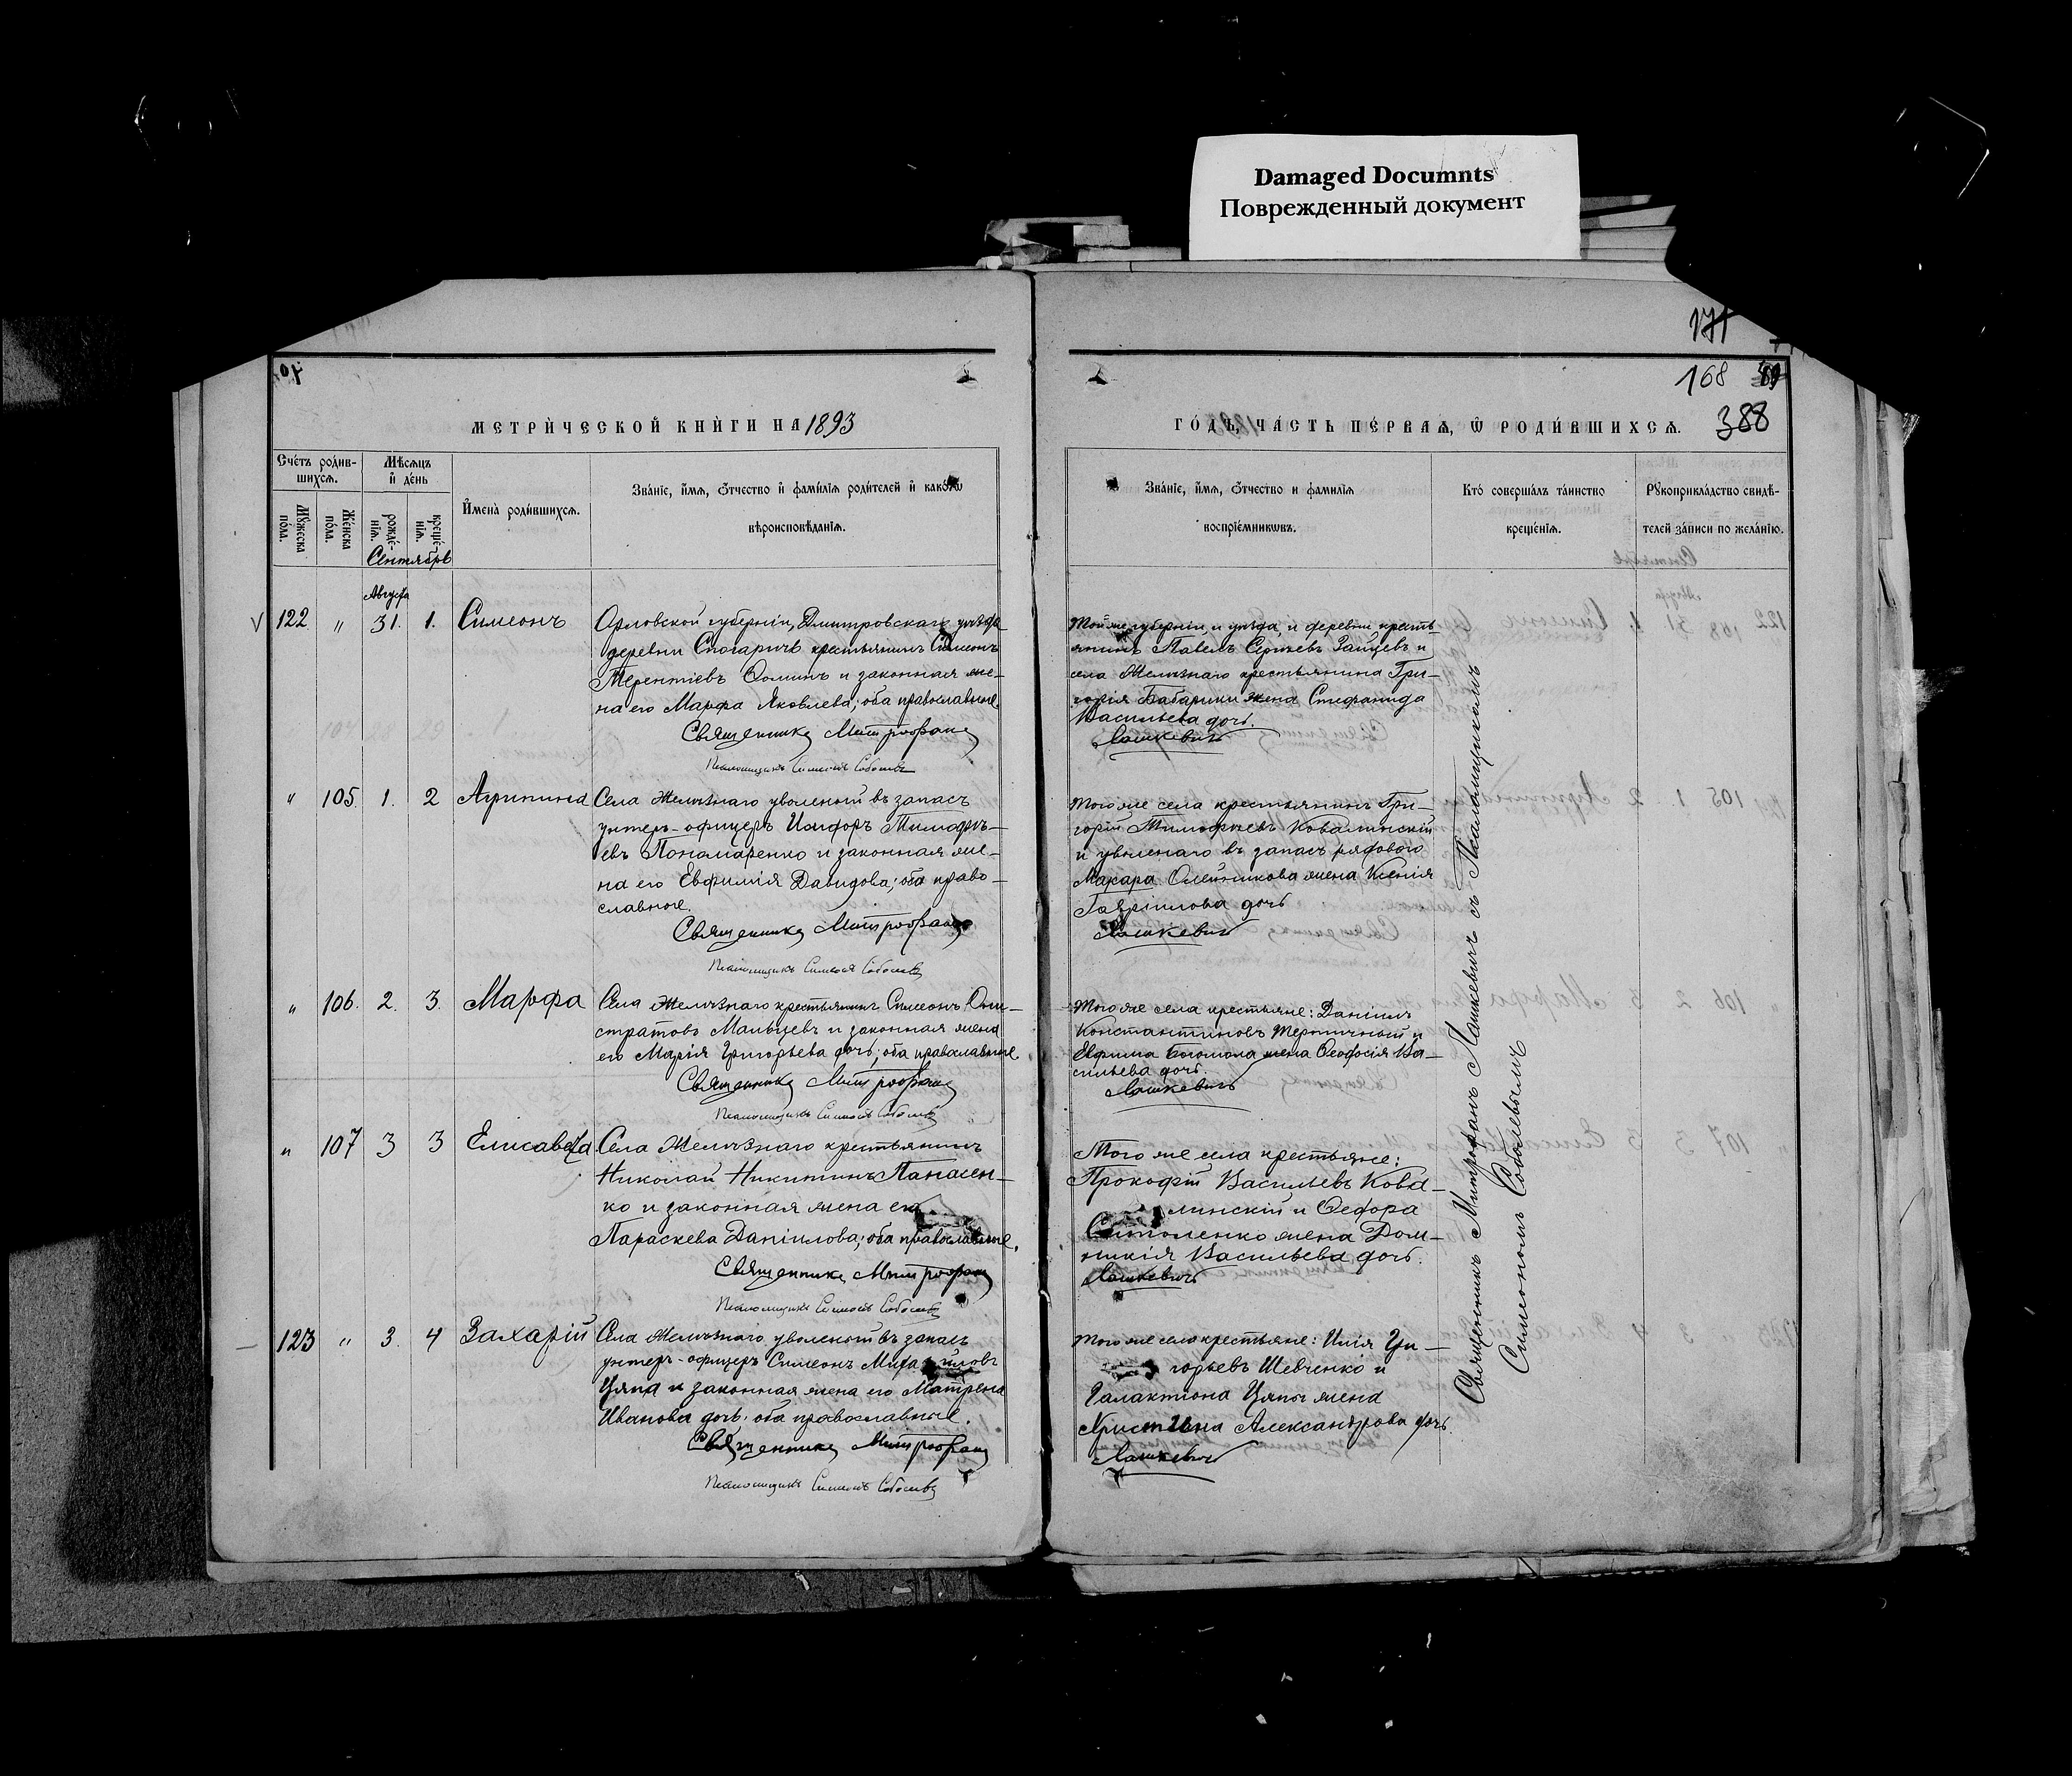 Damaged Documnts
Поврежденный документ
171
168 89
388
МЕТРИ́ЧЕСКОЙ КНИ́ГИ НА 1893
ГО́ДЪ, ЧА́СТЬ ПЕ́РВАѦ, Ѿ РОДИ́ВШИХСѦ.
Сче́тъ роди́в-
шихсѧ.
Мѣ́сѧцъ
и де́нь
Мꙋжеска по́ла.
Же́нска по́ла.
рожде́-
нїѧ.
креще́-
нїѧ.
Имена̀ роди́вшихсѧ.
Зва́нїе, и́мѧ, ѻ́тчество и фами́лїѧ роди́телей и како́гѡ
вѣроисповѣ́данїѧ.
Сентябрь
Зва́нїе, и́мѧ, ѻ́тчество и фами́лїѧ
воспрїе́мникѡвъ.
Кто́ соверша́лъ та́инство
креще́нїѧ.
Рꙋкоприкла́дство свидѣ́-
телей за́писи по жела́нїю.
Августа
122 " 31. 1. Симеонъ
Орловской губернiи, Дмитровскаго уѣзда
деревни крестьянинъ Симеонъ
Терентiевъ Ѳоминъ и законная же-
на его Марфа Яковлева; оба православные.
Священникъ Митрофанъ
Псаломщикъ Симеонъ Соболевъ
Той же губернiи, и уѣзда, и деревни кресть-
янинъ Павелъ Сергѣевъ Зайцевъ и
села Желѣзнаго крестьянина Гри-
горiя Бабарики жена Стефанида
Васильева дочь.
Лашкевичъ
" 105. 1. 2 Агрипина
Села Желѣзнаго уволеный въ запасъ
унтеръ-офицеръ Тимофѣ-
евъ Пономаренко и законная же-
на его Евфимiя Давидова; оба право-
славные.
Священникъ Митрофанъ
Псаломщикъ Симеонъ Соболевъ
Того же села крестьянинъ Гри-
горiй Тимофѣевъ Ковалинскiй
и уволенаго въ запасъ рядового
Макара Олейникова жена Ксенiя
Гаврiилова дочь
Лашкевичъ
" 106. 2. 3. Марфа
Села Желѣзнаго крестьянинъ Симеонъ Они-
стратовъ Мальцевъ и законная жена
его Марiя Григорьева дочь; оба православные.
Священникъ Митрофанъ
Псаломщикъ Симеонъ Соболевъ
Того же села крестьяне: Данiилъ
Константиновъ и
Евфима Богомола жена Ѳеодосiя Ва-
сильева дочь.
Лашкевичъ
" 107 3 3 Елисавета
Села Желѣзнаго крестьянинъ
Николай Никитинъ Панасен-
ко и законная жена его
Параскева Данiилова; оба православные.
Священникъ Митрофанъ
Псаломщикъ Симеонъ Соболевъ
Того же села крестьяне:
Прокофiй Васильевъ Кова-
линскiй и Ѳедора
жена Дом-
никiя Васильева дочь.
Лашкевичъ
123 " 3. 4 Захарiй
Села Желѣзнаго уволеный въ запасъ
унтеръ-офицеръ Симеонъ Михаиловъ
Цяпа и законная жена его Матрена
Иванова дочь. оба православные.
Священникъ Митрофанъ
Псаломщикъ Симеонъ Соболевъ
Того же села крестьяне: Илiя Гри-
горьевъ Шевченко и
Галактiона Цяпы жена
Христина Александрова дочь
Лашкевичъ
Священникъ Митрофанъ Лашкевичъ съ Псаломщикомъ
Симеономъ Соболевымъ